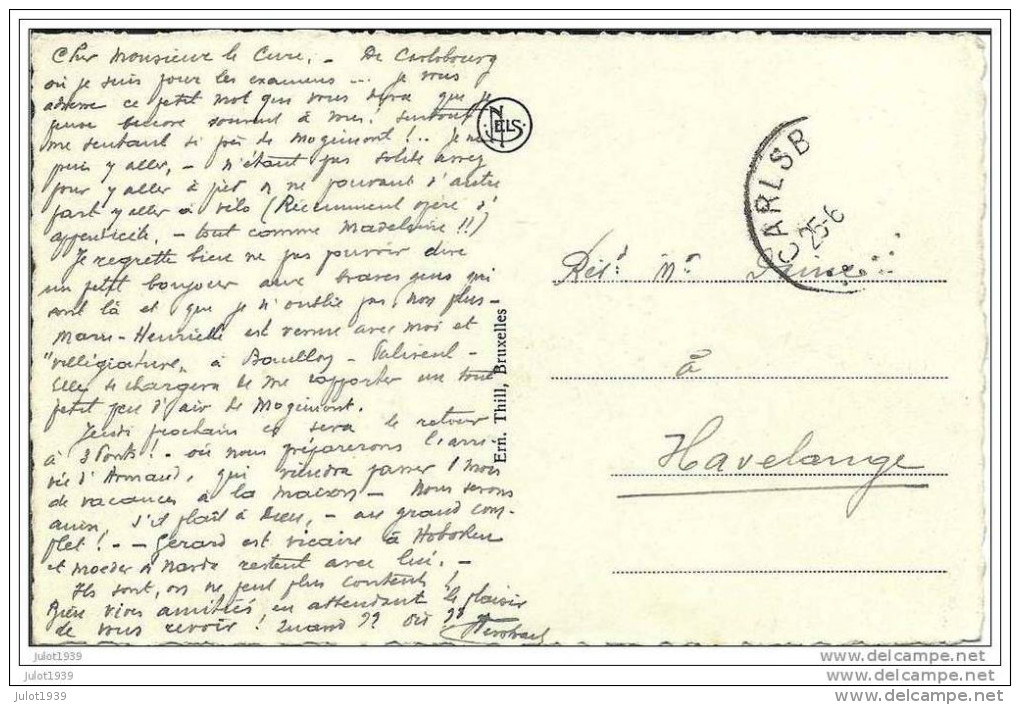 Cher Monsieur le Curé, - De Carlsbourg
où je suis pour les examens ... je vous
adresse ce petit mot qui vous dira que je
pense encore souvent à vous! surtout
me sentant si près de Mogimont!.. Je ne
puis y aller, - n'étant pas solide assez
pour y aller à pied & ne pouvant d'autre
part y aller à vélo (Récemment opéré d'
appendicite, - tout comme Madeleine !!)
Je regrette bien ne pas pouvoir dire
un petit bonjour aux braves gens qui
sont là et que je n'oublie pas non plus -
Marie-Henriette est venue avec moi et
"villégiature" à Bouillon - Paliseul -
Elle se chargera de me rapporter un tout
petit peu d'air de Mogimont.
Jeudi prochain ce sera le retour
à 3 Ponts! - où nous préparerons l'arri-
vée d'Armand, qui viendra passer 1 mois
de vacances à la maison - Nous serons
ainsi, s'il plaît à Dieu, - au grand com-
plet! - - Gérard est vicaire à Hoboken
et Moeder & restent avec lui. -
Ils sont, on ne peut plus contents!
Bien vives amitiés en attendant le plaisir
de vous revoir! Quand ?? Où ??
NELS
Ern. Thill, Bruxelles
CARLSB
25-6
Rév. Mr
à
Havelange
julot1939
julot1939
julot1939
www.delcampe.net
www.delcampe.net
www.delcampe.net